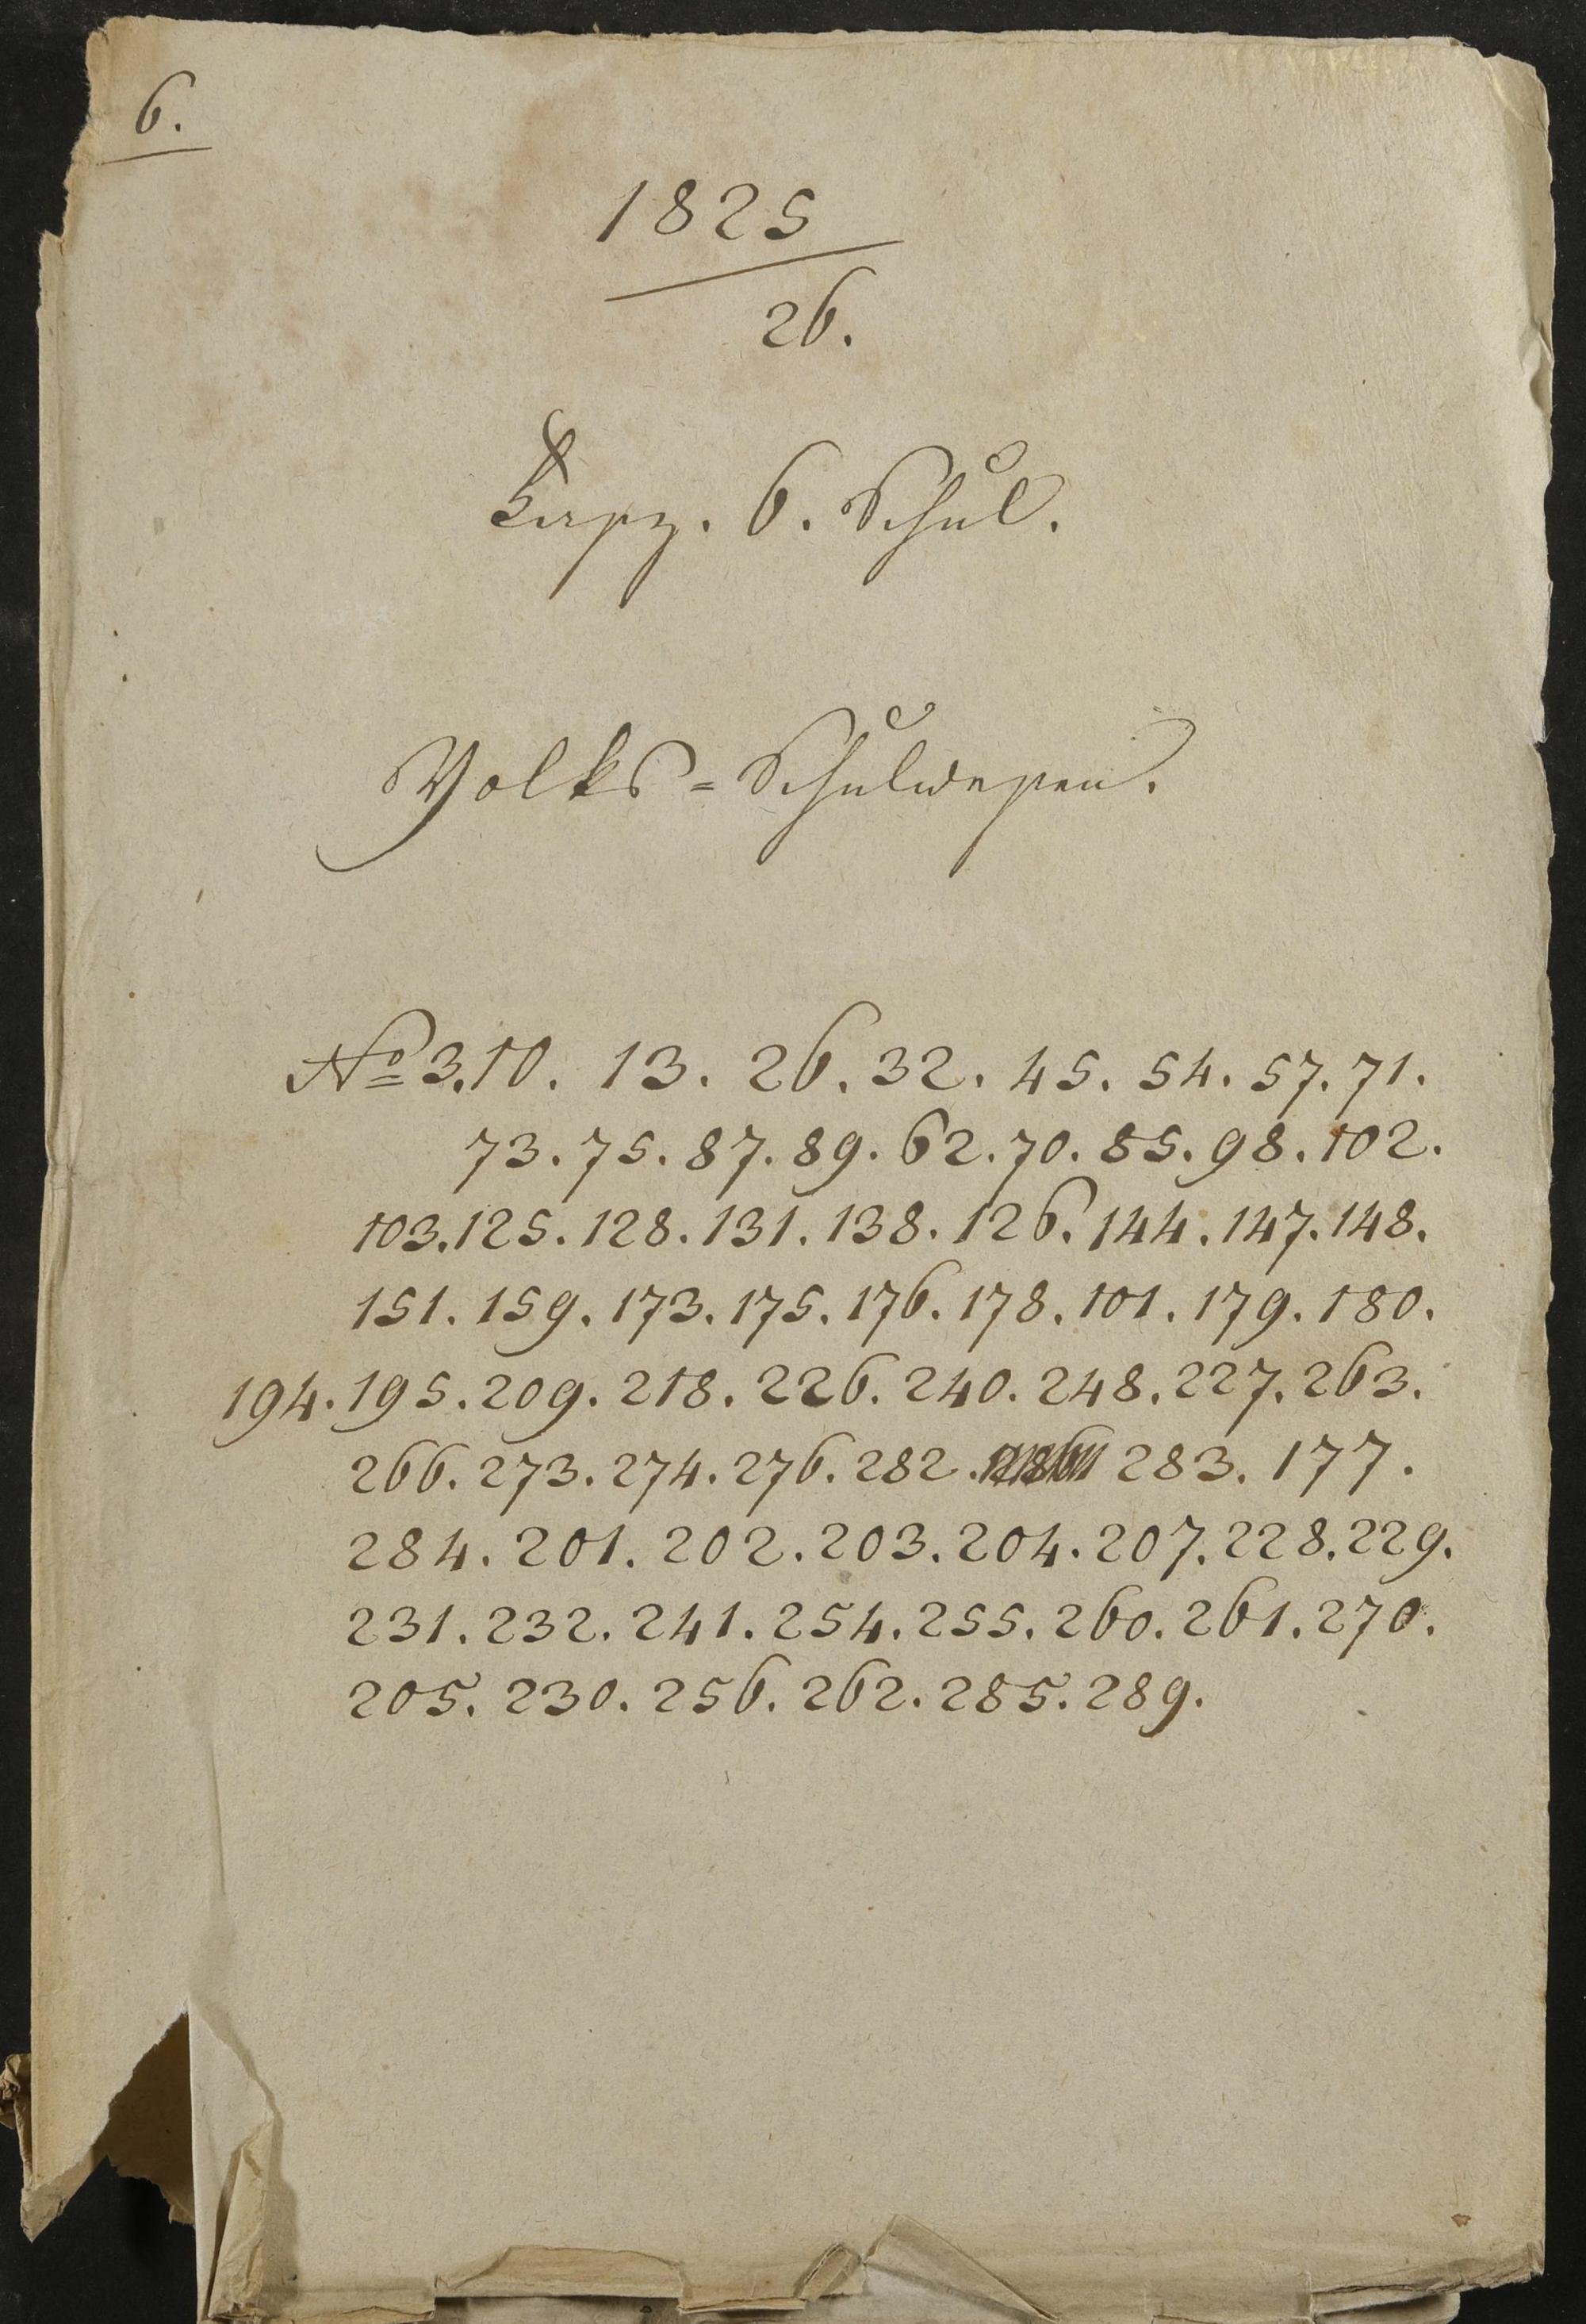 6.
1825
26.
6. Schul.
Volks=Schulwesen.
No 3. 10. 13. 26. 32. 45. 54. 57. 71.
73. 75. 87. 89. 62. 70. 85. 98. 102.
103. 125. 128. 131. 138. 126. 144. 147. 148.
151. 159. 173. 175. 176. 178. 101. 179. 180.
194. 195. 209. 218. 226. 240. 248. 227. 263.
266. 273. 274. 276. 282. 283. 177.
284. 201. 202. 203. 204. 207. 228. 229.
231. 232. 241. 254. 255. 260. 261. 270.
205. 230. 256. 262. 285. 289.